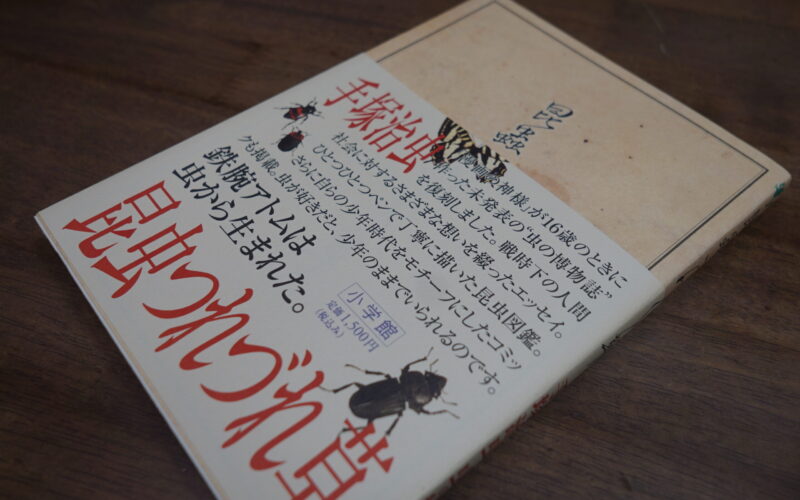 昆蟲
手塚治虫
「漫画の神様」が16歳のときに
作った未発表の“虫の博物誌”
を復刻しました。戦時下の人間
社会に対するさまざまな想いを綴ったエッセイ。
ひとつひとつペンで丁寧に描いた昆虫図鑑。
さらに自らの少年時代をモチーフにしたコミッ
クも掲載。虫が好きだと、少年のままでいられるのです。
鉄腕アトムは
虫から生まれた。
昆虫つれづれ草
小学館
定価1,500円
(税込み)